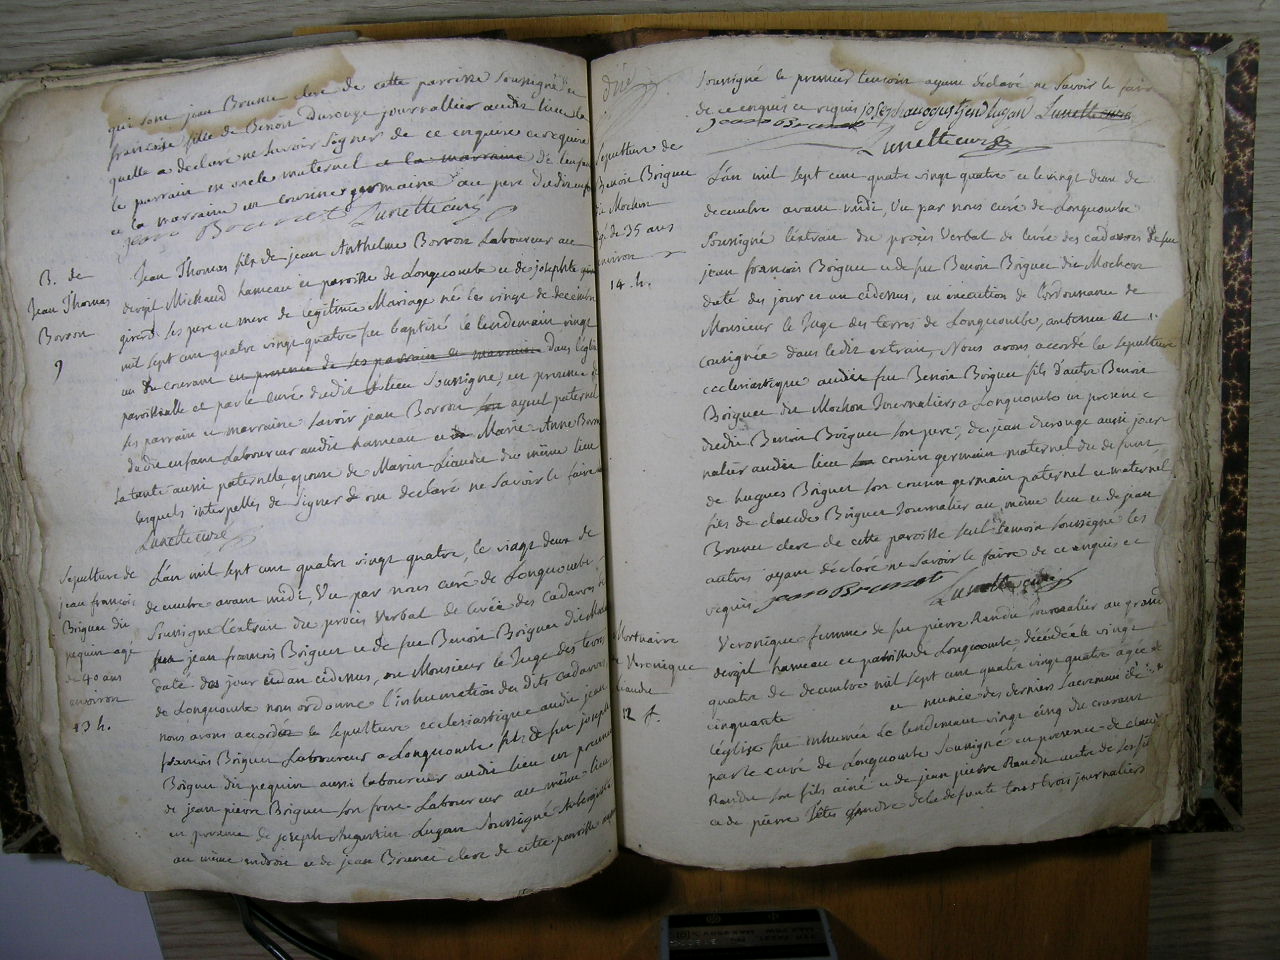 qui sont jean Brunet clerc de cette paroisse soussigné et
françoise fille de Benoit Durouge journallier audit lieu la
quelle a declaré ne savoir signer de ce enquise et requise
le parrain est oncle maternel et la marraine de l'enfant
et la marraine est cousine germaine au pere dudit enfant
jean Brunet Lunette curé
B. de
Jean Thomas
Borron
9
Jean Thomas fils de jean Anthelme Borron Laboureur au
Michaud hameau et paroisse de Longecombe et de josephte
girerd ses pere et mere de legitime Mariage né le vingt de decembre
mil sept cent quatre vingt quatre fut baptisé le lendemain vingt
un du courant en presence de ses parrain et marraine dans l'église
paroissialle et par le curé dudit lieu soussigné, en presence de
ses parrain et marraine savoir jean Borron son ayeul paternel
dudit enfant Laboureur audit hameau et de Marie-Anne Borron
sa tante aussi paternelle epouse de Marin Liaudet du même lieu
lesquels interpellés de signer ont declaré ne savoir le faire
Lunette curé
Sepulture de
jean françois
Briguet dit
pequin agé
de 40 ans
environ
13 h.
L'an mil sept cent quatre vingt quatre, le vingt deux de
decembre avant midi, Vu par nous curé de Longecombe
soussigné l'extrait du procès Verbal de levée des cadavres de
feu jean françois Briguet et de feu Benoit Briguet dit Mochon
daté des jour et an cidessus, ou Monsieur le Juge des terres
de Longecombe nous ordonne l'inhumation des dits cadavres
nous avons accordé la sepulture ecclesiastique audit jean
francois Briguet Laboureur a Longecombe fils de feu joseph
Briguet dit pequin aussi laboureur audit lieu en presence
de jean pierre Briguet son frere Laboureur au même lieu
en presence de joseph Augustin Lugan soussigné Aubergiste
au même endroit et de jean Brunet clerc de cette paroisse aussi
soussigné le premier temoin ayant declaré ne savoir le faire
de ce enquis et requis joseph augustjen lugan Lunette curé
jean Brunet
Lunette curé
Sepulture de
Benoit Briguet
dit Mochon
agé de 35 ans
environ
14. h.
L'an mil sept cent quatre vingt quatre et le vingt deux de
decembre avant midi, Vu par nous curé de Longecombe
soussigné l'extrait du procès Verbal de levée des cadavres de feu
jean françois Briguet et de feu Benoit Briguet dit Mochon
daté des jour et an cidessus, en execution de l'ordonnance de
Monsieur le Juge des terres de Longecombe, contenue et
consignée dans ledit extrait, Nous avons accordé la sepulture
ecclesiastique audit feu Benoit Briguet fils d'autre Benoit
Briguet dit Mochon Journaliers a Longecombe en presence
dudit Benoit Briguet son pere, de jean durouge aussi jour
nalier audit lieu cousin germain maternel du defunt
de hugues Briguet son cousin germain paternel et maternel
fils de claude Briguet Journalier au même lieu et de jean
Brunet clerc de cette paroisse seul temoin soussigné les
autres ayant declaré ne savoir le faire de ce enquis et
requis jean Brunet Lunette curé
Mortuaire
de Veronique
Liaudet
12 f.
Veronique femme de feu pierre Randu Journalier au grand
hameau et paroisse de Longecombe, decédée le vingt
quatre de decembre mil sept cent quatre vingt quatre agée de
cinquante et munie des derniers sacremens de
l'eglise fut inhumée le lendemain vingt cinq du courant
par le curé de Longecombe soussigné en presence de claude
Randu son fils ainé et de jean pierre Randu autre de ses fils
et de pierre gendre de la defunte tous trois journaliers